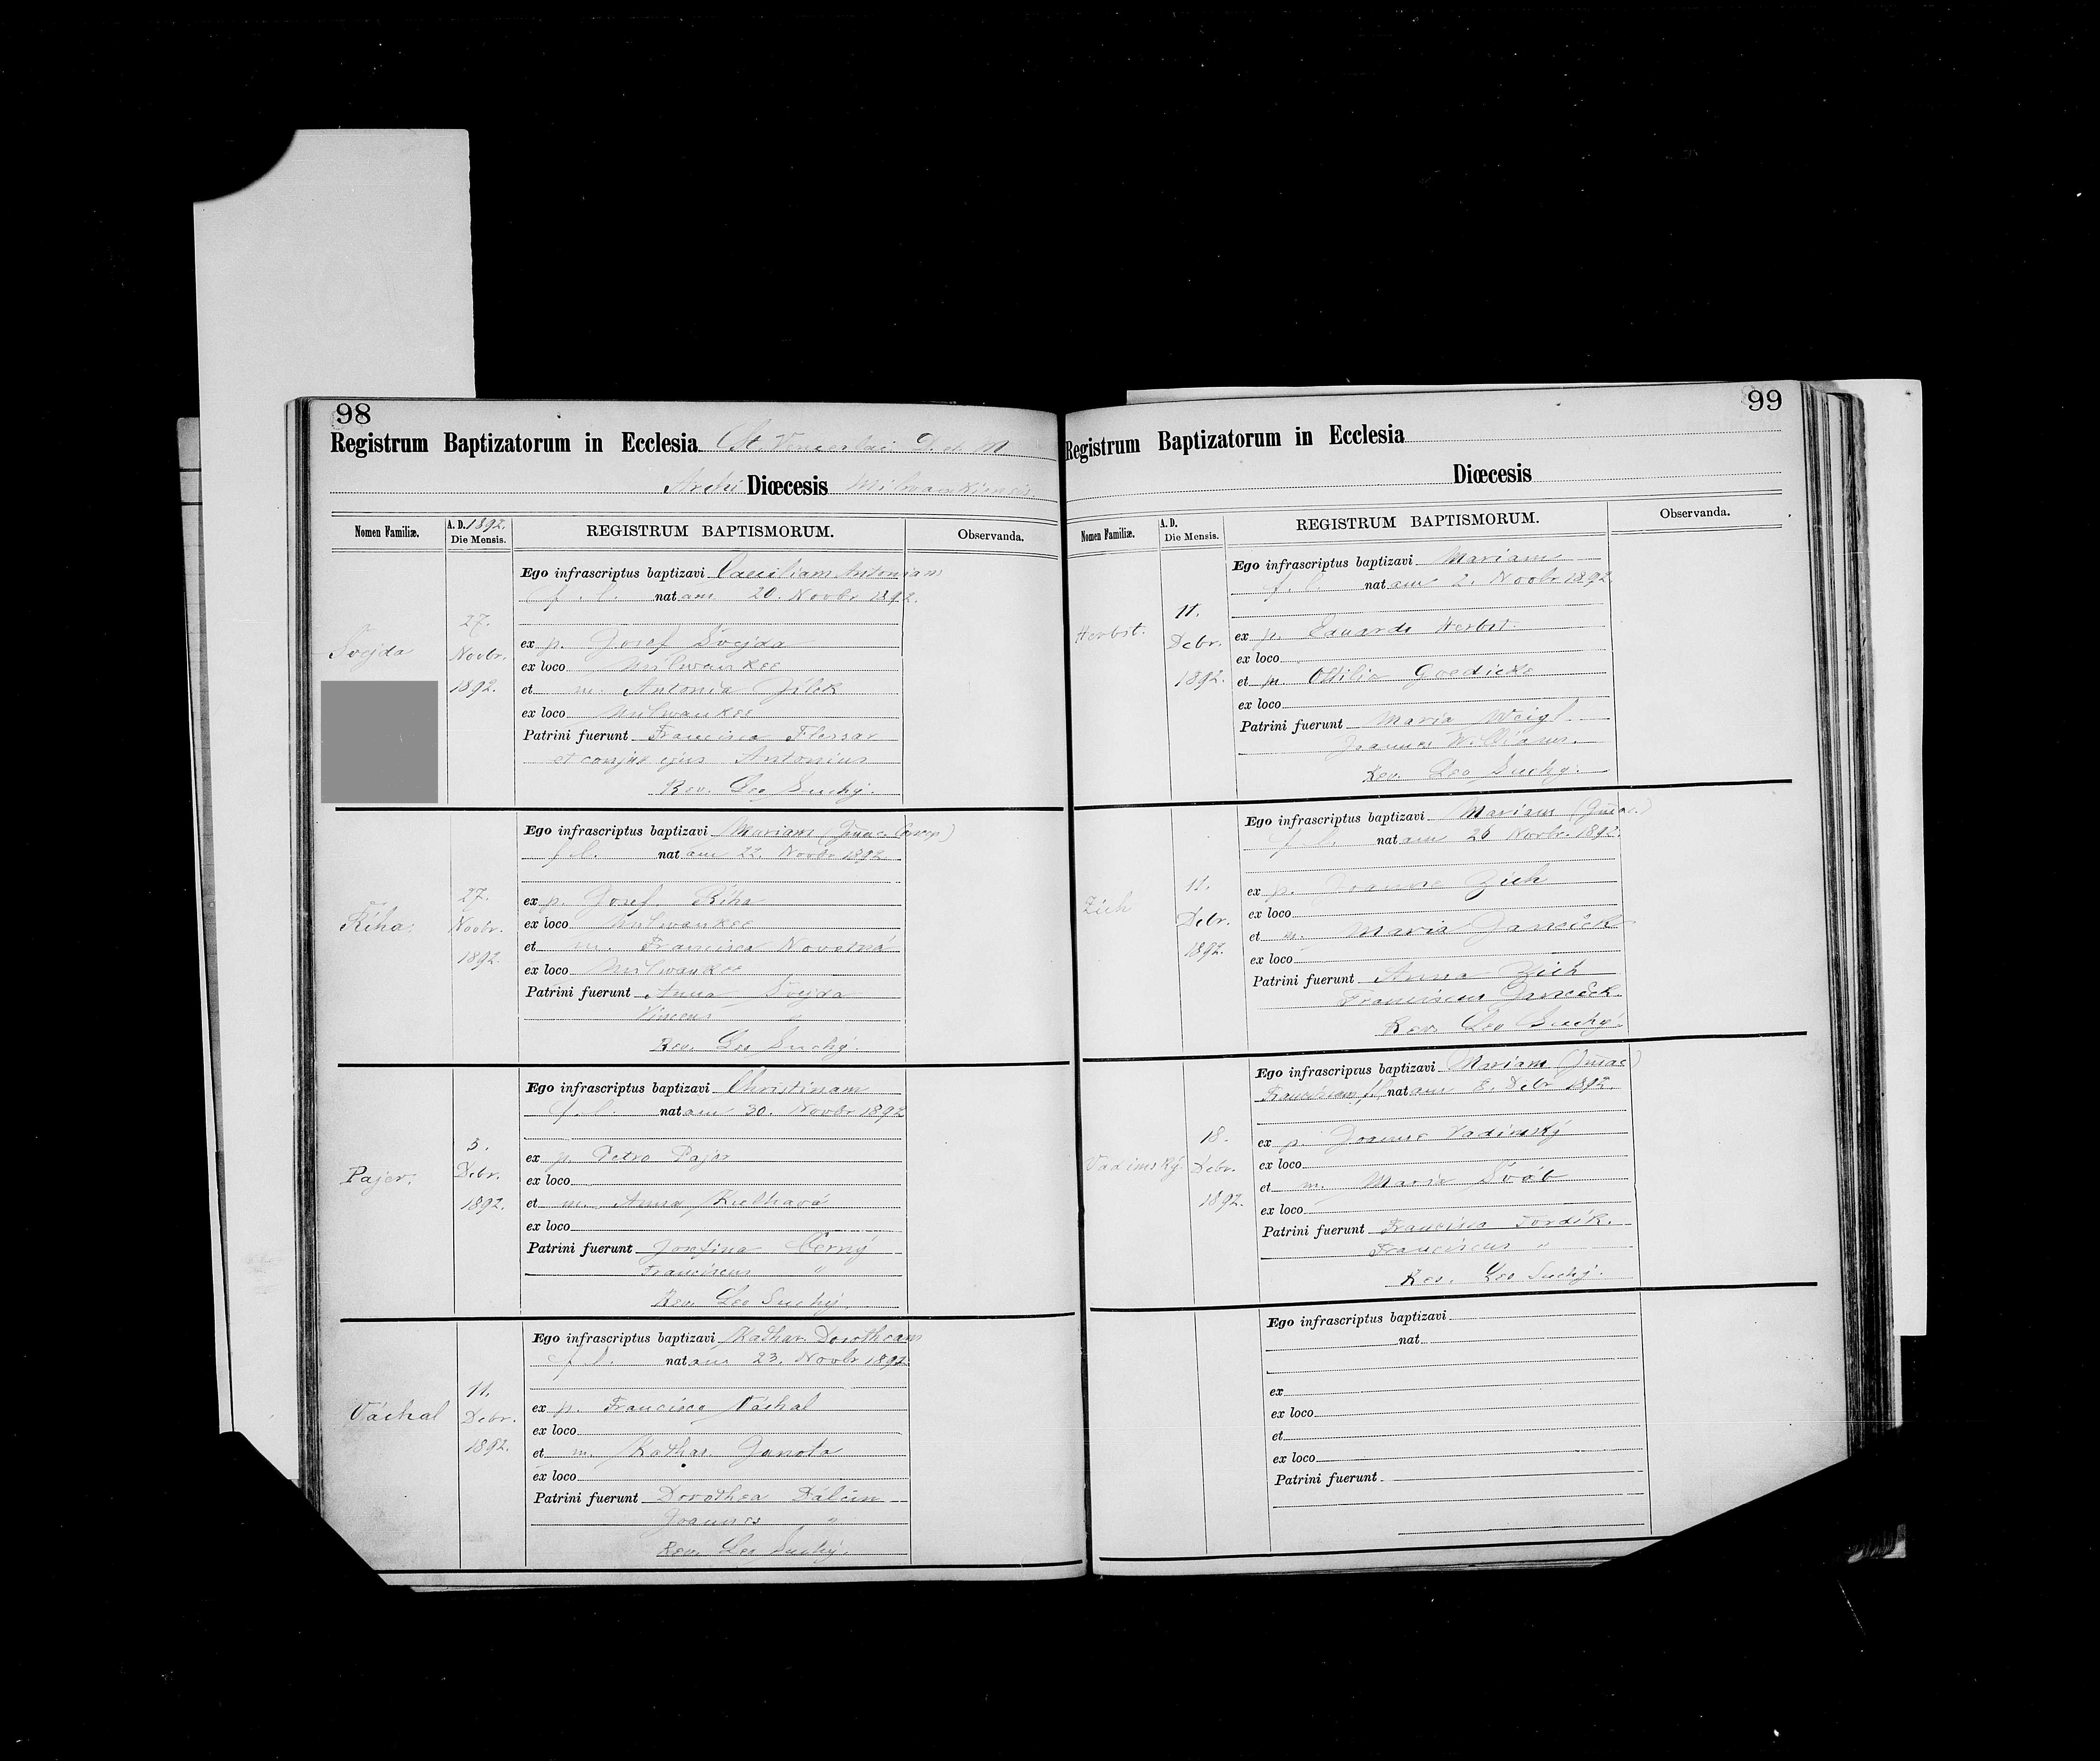 98
Registrum Baptizatorum in Ecclesia St. Venceslai D. et M
Archi Diœcesis Milwaukiensis.
Nomen Familiæ.
A. D. 1892.
Die Mensis.
REGISTRUM BAPTISMORUM.
Observanda.
Švejda
27.
Novbr.
1892.
Ego infrascriptus baptizavi Caeciliam Antoniam
f. l. natam 20. Novbr 1892.
ex p. Josef Švejda
ex loco Milwaukee
et m. Antonia Jílek
ex loco Milwaukee
Patrini fuerunt Francisca Flessar
et conjux ejus Antonius
Rev. Leo Suchý.
Říha.
27.
Novbr.
1892.
Ego infrascriptus baptizavi Mariam (Imac. Concep)
f. l. natam 22. Novbr 1892
ex p. Josef. Říha
ex loco Milwaukee
et m. Francisca Novotná
ex loco Milwaukee
Patrini fuerunt Anna Švejda
Vincens "
Rev. Leo Suchý.
Pajer.
3.
Debr.
1892.
Ego infrascriptus baptizavi Christinam
f. l. natam 30. Novbr 1892
ex p. Petro Pajer
ex loco
et m. Anna Kulhavá
ex loco
Patrini fuerunt Josefina Černý
Franciscus "
Rev. Leo Suchý.
Váchal
11.
Debr.
1892.
Ego infrascriptus baptizavi Kathar Dorotheam
f. l. natam 23. Novbr 1892
ex p. Francisco Váchal
ex loco
et m. Kathar. Janota
ex loco
Patrini fuerunt Dorothea
Joannes "
Rev. Leo Suchý.
99
Registrum Baptizatorum in Ecclesia
Diœcesis
Nomen Familiæ.
A. D.
Die Mensis.
REGISTRUM BAPTISMORUM.
Observanda.
Herbst.
11.
Debr.
1892.
Ego infrascriptus baptizavi Mariam
f. l. natam 2. Novbr 1892
ex p. Eduardo Herbst.
ex loco
et m. Ottilia Goedicke
ex loco
Patrini fuerunt Maria Weigl
Joannes Williams.
Rev. Leo Suchý.
Zich
11.
Debr.
1892.
Ego infrascriptus baptizavi Mariam (Imac.)
f. l. natam 26 Novbr. 1892.
ex p. Joanne Zich
ex loco
et m. Maria Janeček
ex loco
Patrini fuerunt Anna Zich
Franciscus Janeček.
Rev. Leo Suchý.
Vadimský.
18.
Debr.
1892.
Ego infrascriptus baptizavi Mariam (Imac)
Franciscam f.l. natam 8. Debr 1892.
ex p. Joanne Vadimský
ex loco
et m. Maria Šváb
ex loco
Patrini fuerunt Francisca Tordík.
Franciscus "
Rev. Leo Suchý.
Ego infrascriptus baptizavi
nat
ex
ex loco
et
ex loco
Patrini fuerunt